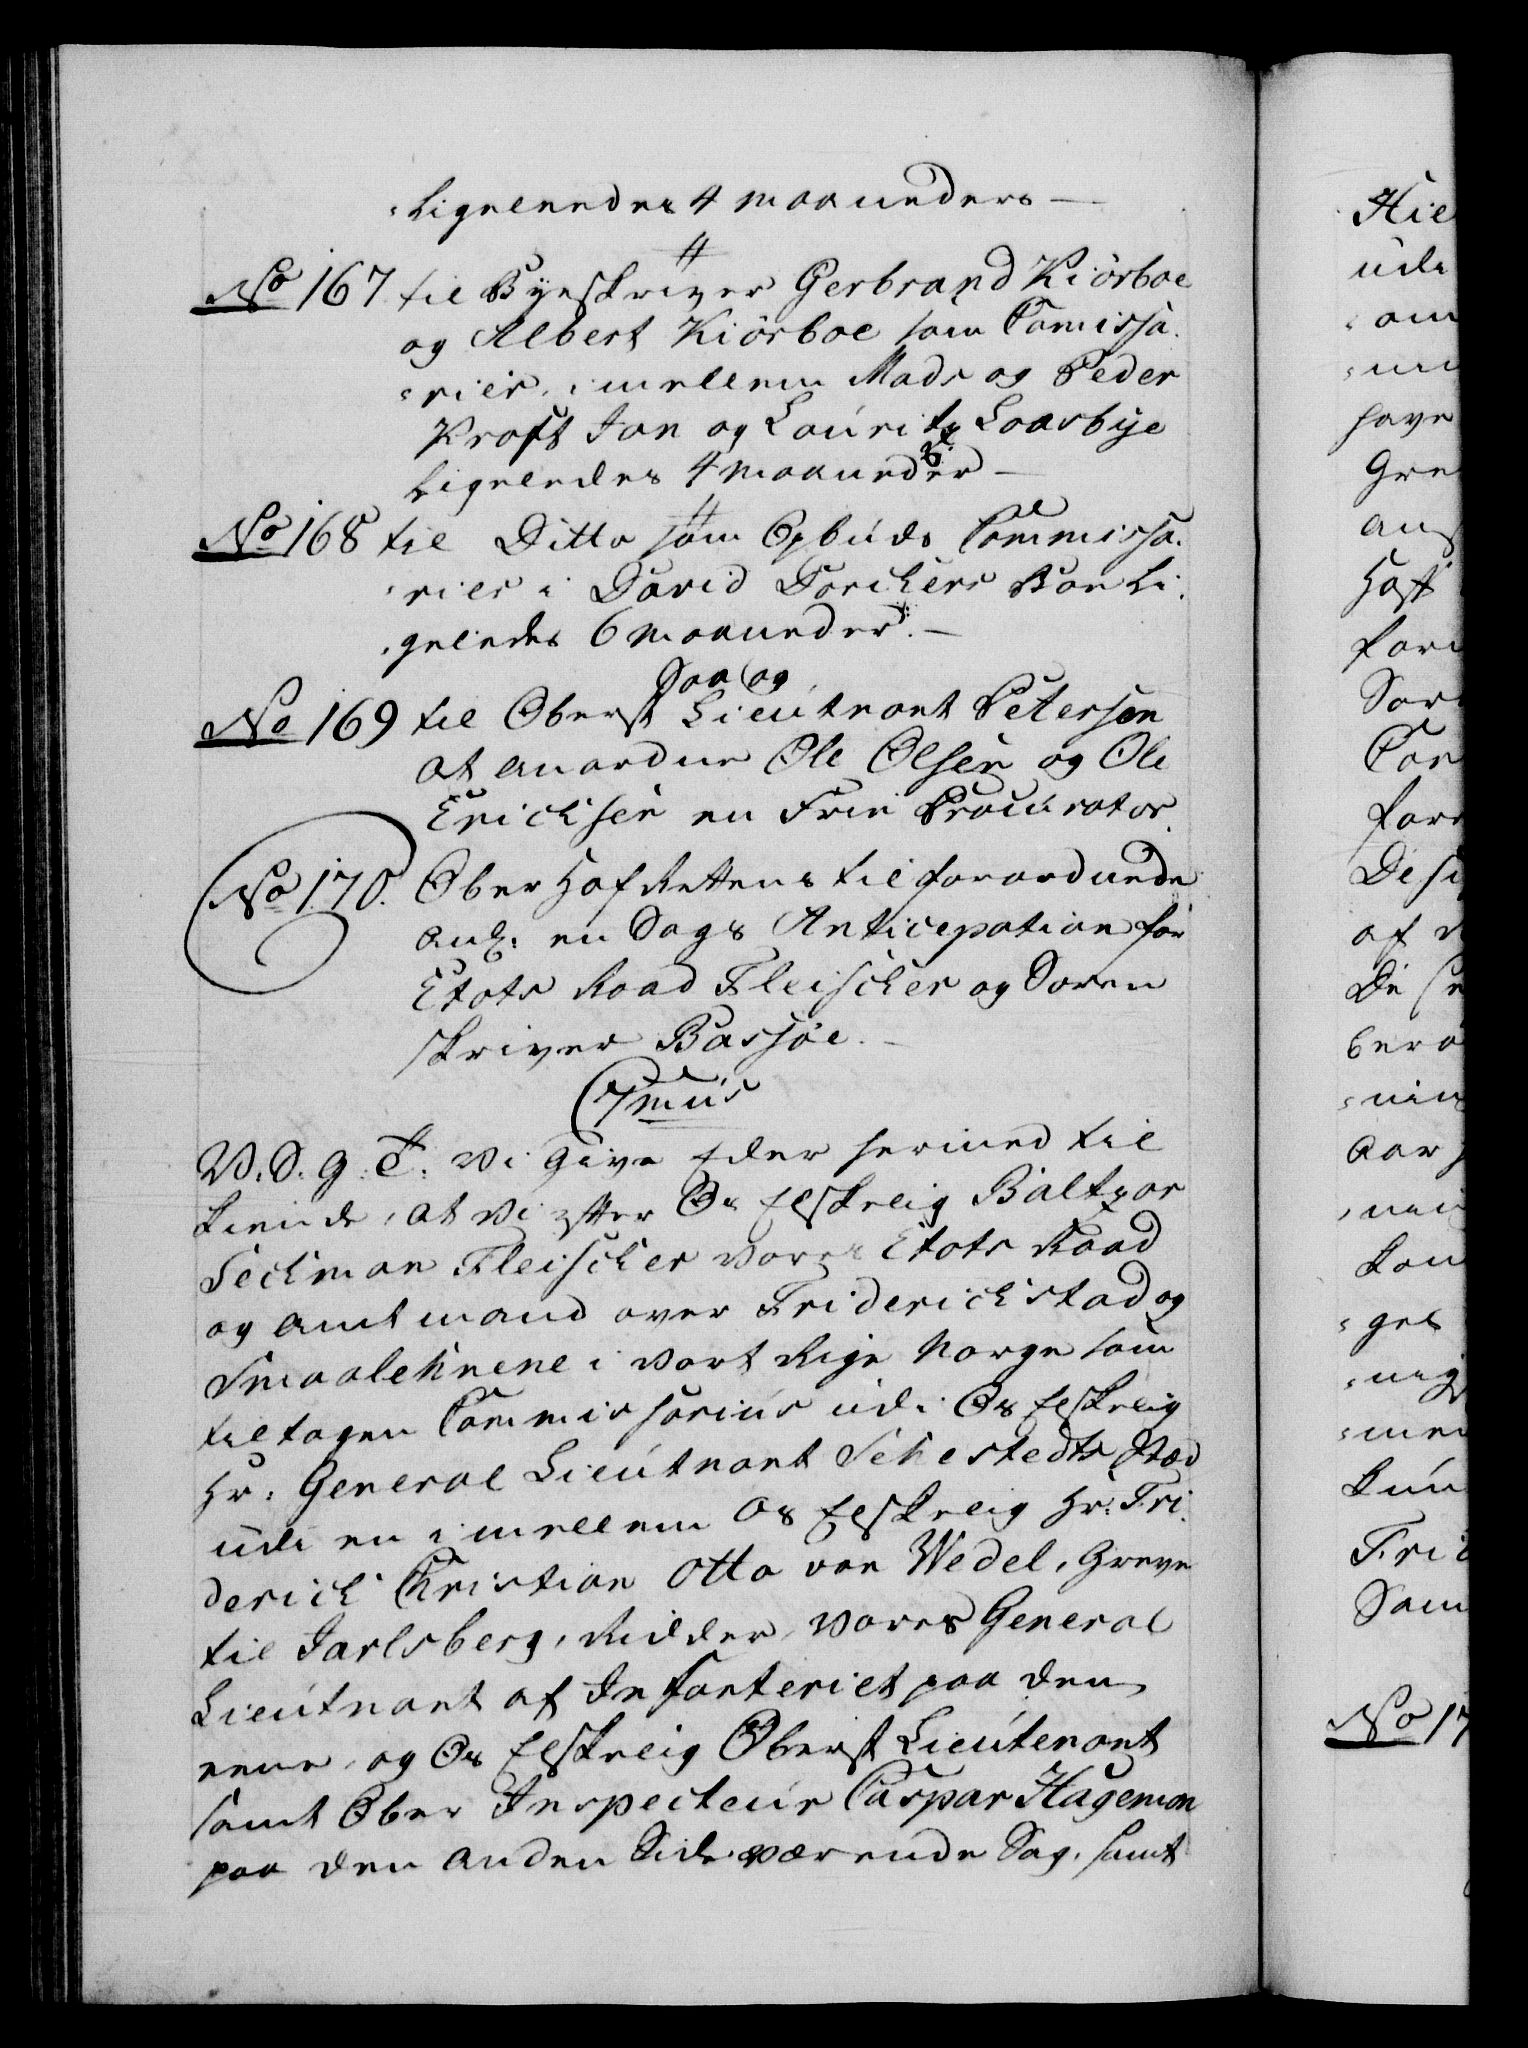 ligeleedes 4 maaneders —
No 167 til Byeskriver Gerbrand Kiörboe
og Albert Kiörboe som Comissa-
rier, imellem Mads og Peder
Kraft Jan og Lauritz Laasbye
ligeledes 4 maaneder —
No 168 til Ditto som Opbuds Commissa-
rier i David Torchers Boe li-
geledes 6 maaneder. —
Saa og
No 169 til Oberst Lieutnant Petersen
at anordne Ole Olsen og Ole
Erichsen en Frie Procurator.
No 170. Ober Hof Rettens tilforordnede
anl: en Sags Anticipation for
Etats Raad Fleischer og Soren
skriver Bassøe. —
7mus
V. S. G. T. Vi give Eder hermed til
kiende, at Vi efter Os Elskelig Baltzar
Sechman Fleischer Vores Etats Raad
og Amtmand over Friderichstad og
Smaalehnene i Vort Rige Norge som
tiltagen Commissarius udi Os Elskelig
Hr: General Lieutnant Sehestedts Stæd
udi en imellem Os Elskelig Hr: Fri-
derich Christian Otto von Wedel, Greve
til Jarlsberg, Ridder, Vores General
Lieutnant af Infanteriet paa den
eene, og Os Elskelig Oberst Lieutenant
samt Ober Inspecteur Caspar Hageman
paa den anden Side værende Sag, samt